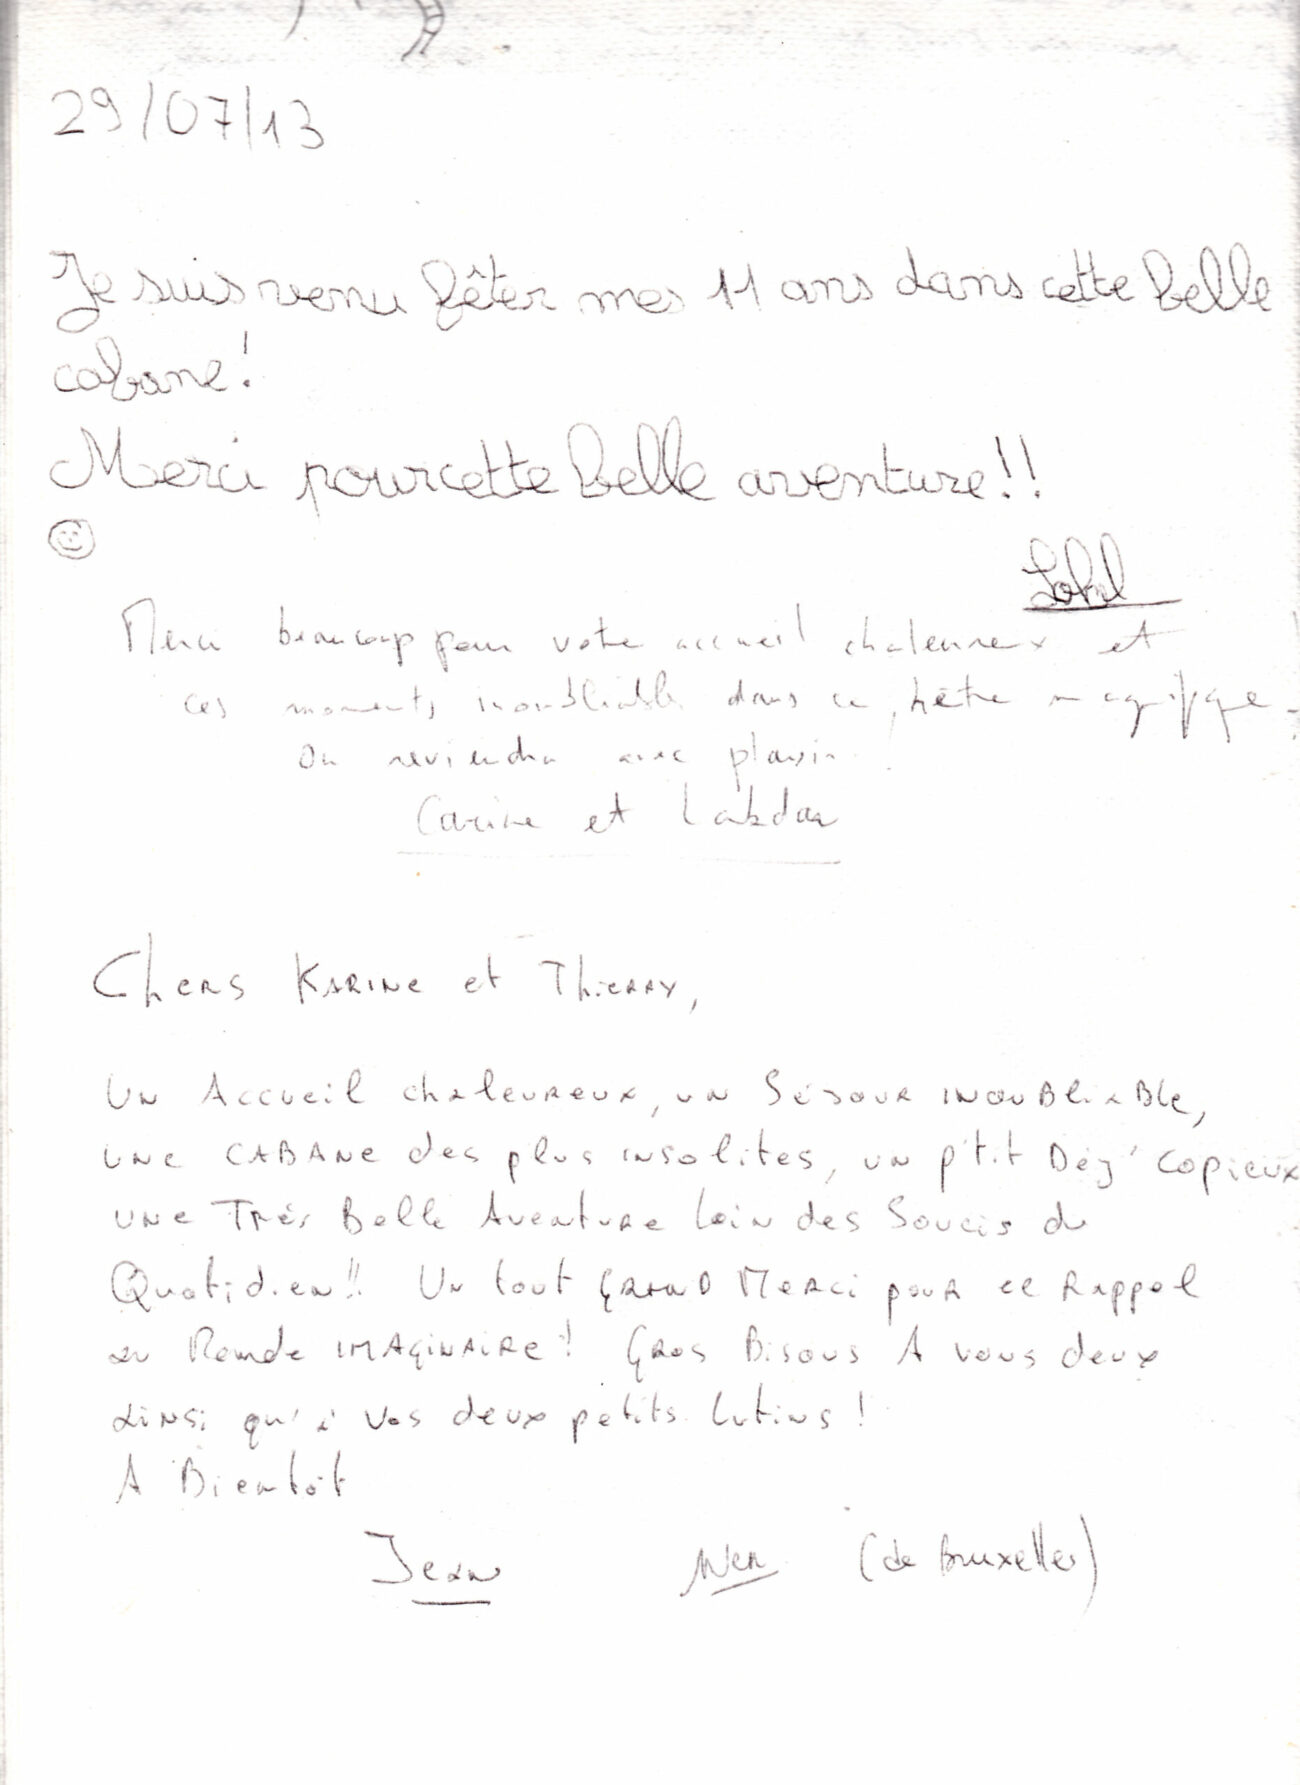 29/07/13
Je suis venu fêter mes 11 ans dans cette belle
cabane!
Merci pour cette belle aventure!!
Merci beaucoup pour votre accueil chaleureux et
ces moments inoubliables dans ce hêtre magnifique.
On reviendra avec plaisir!
Carine et Lakdar
Chers Karine et Thierry,
Un Accueil chaleureux, un Séjour inoubliable,
une CABANE des plus insolites, un p'tit Déj' copieux
une Très Belle Aventure loin des Soucis du
Quotidien!! Un tout GRAND Merci pour ce Rappel
au Monde IMAGINAIRE! Gros Bisous A vous deux
ainsi qu'à vos deux petits lutins!
A Bientôt
Jean (de Bruxelles)